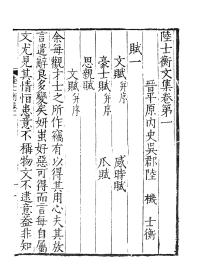 陸士衡文集卷第一
晉平原內史吳郡陸 機 士衡
賦一
文賦并序 感時賦
豪士賦并序 瓜賦
思親賦
文賦并序
余每觀才士之所作竊有以得其用心夫其放
言遣辭良多變矣妍蚩好惡可得而言每自屬
文尤見其情恒患意不稱物文不逮意蓋非知